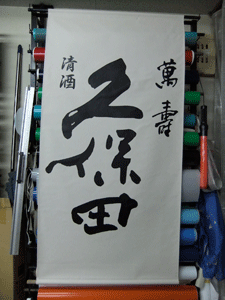 萬寿
久保田
清酒